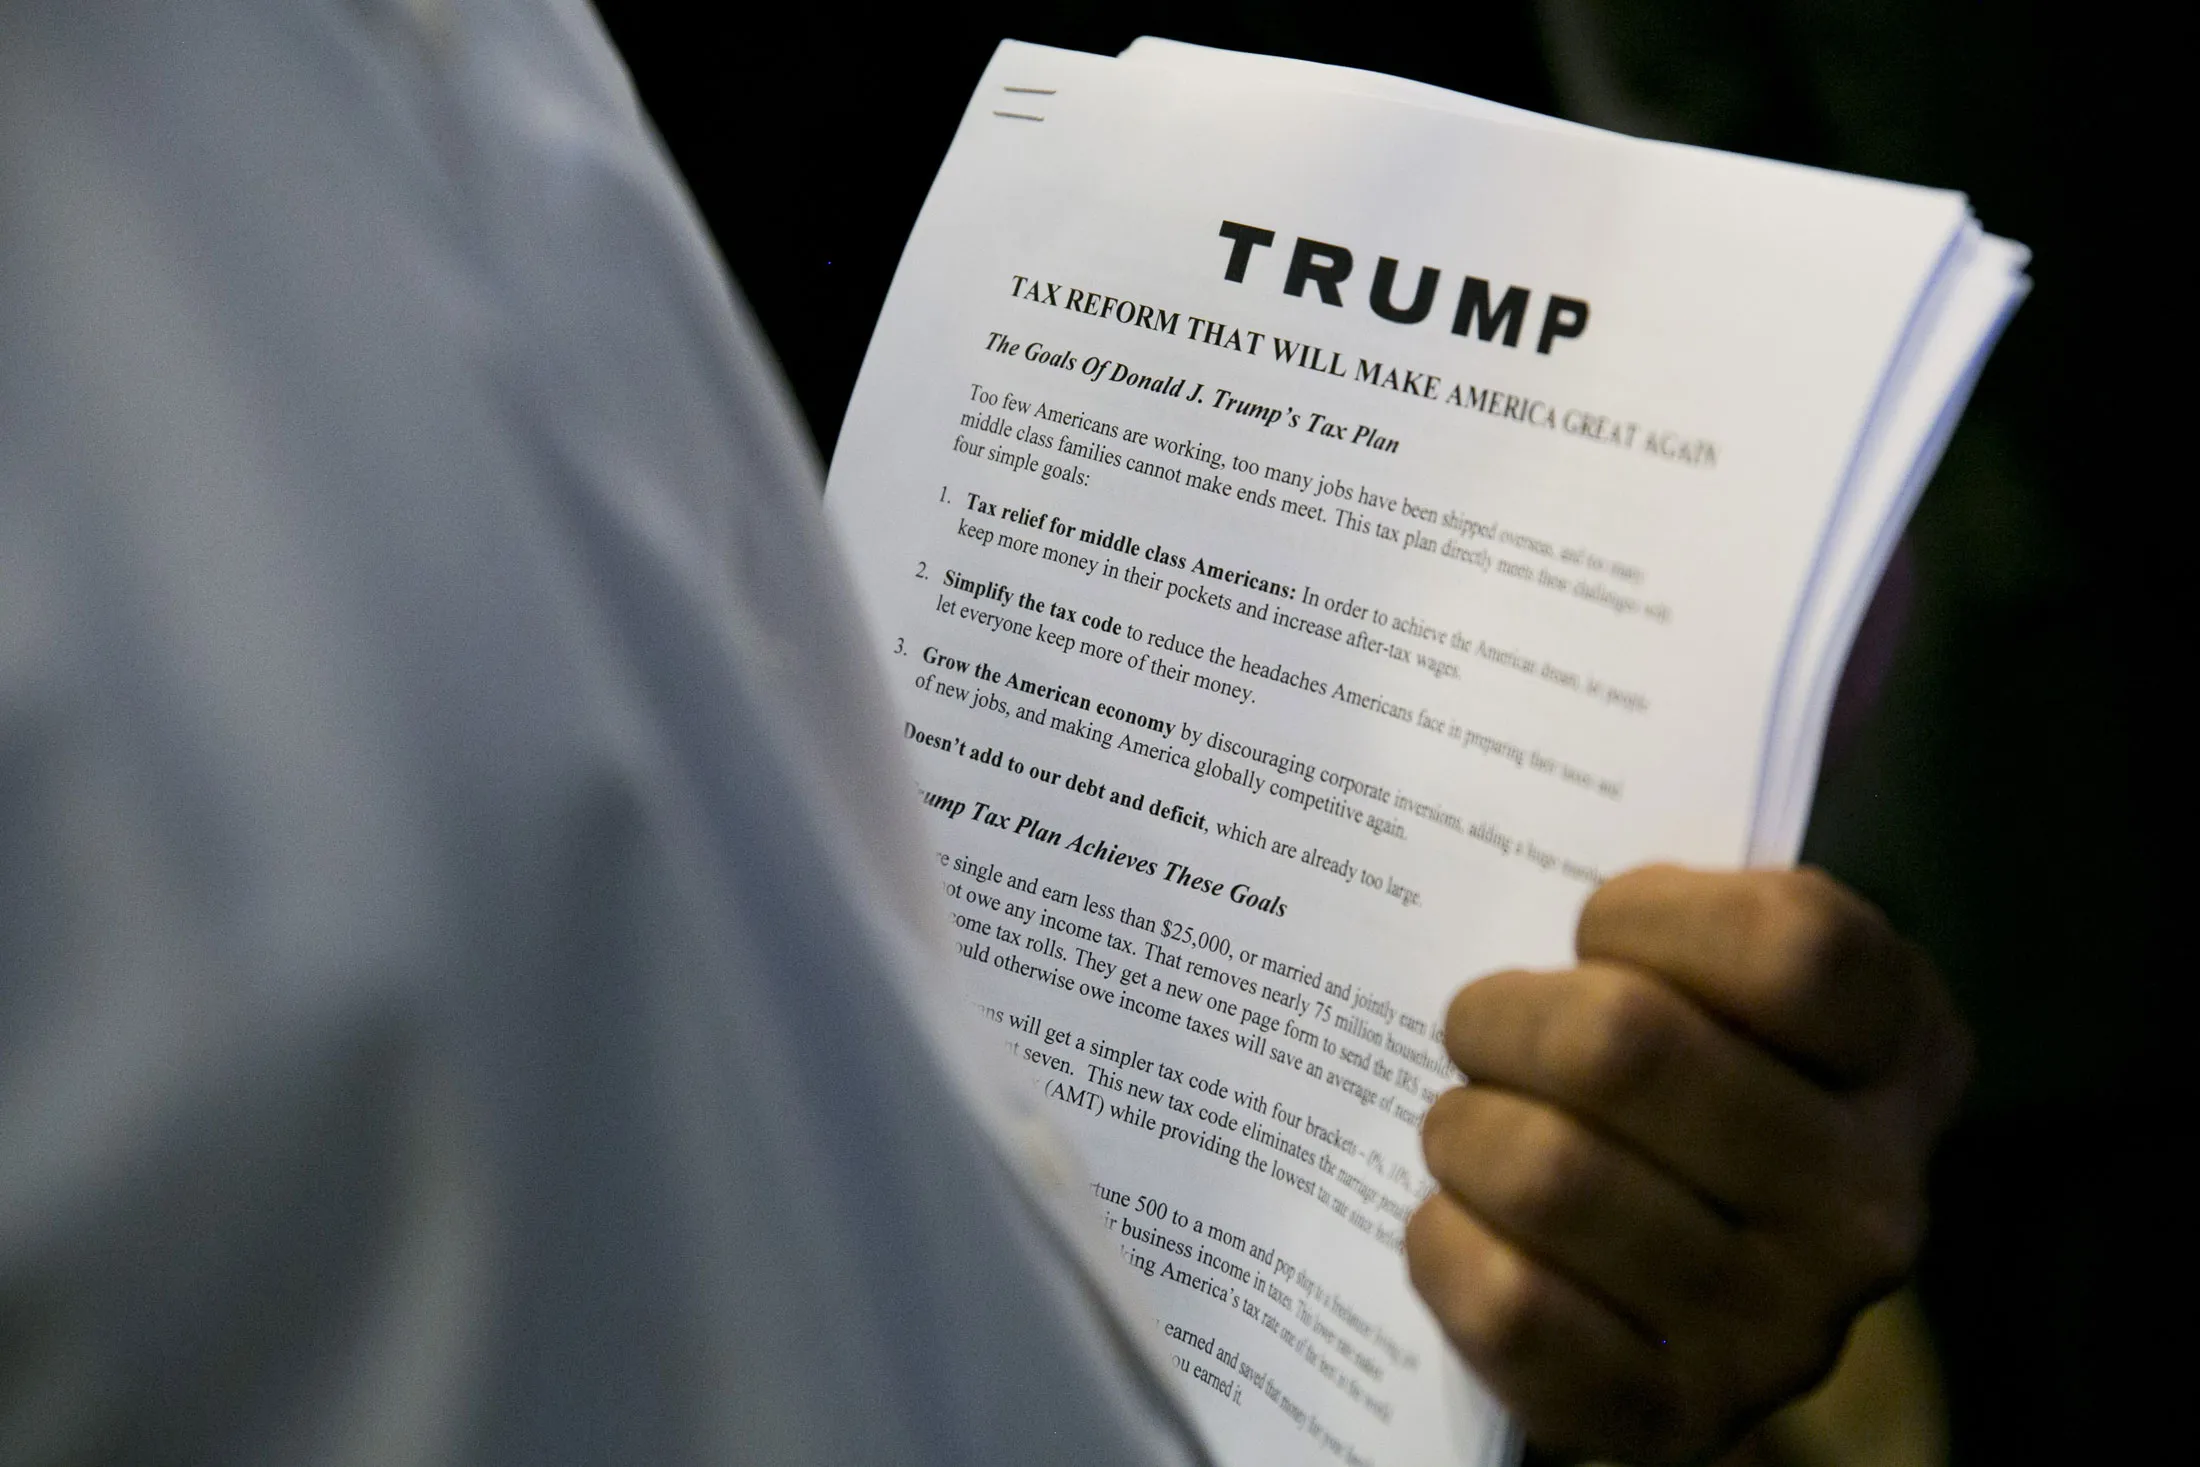 TRUMP
TAX REFORM THAT WILL MAKE AMERICA GREAT AGAIN
The Goals Of Donald J. Trump's Tax Plan
Too few Americans are working, too many jobs have been shipped overseas, and too many
middle class families cannot make ends meet. This tax plan directly meets these challenges with
four simple goals:
1. Tax relief for middle class Americans: In order to achieve the American dream, let people
keep more money in their pockets and increase after-tax wages.
2. Simplify the tax code to reduce the headaches Americans face in preparing their taxes and
let everyone keep more of their money.
3. Grow the American economy by discouraging corporate inversions, adding a huge number
of new jobs, and making America globally competitive again.
Doesn't add to our debt and deficit, which are already too large.
Tax Plan Achieves These Goals
single and earn less than $25,000, or married and jointly earn
owe any income tax. That removes nearly 75 million households
tax rolls. They get a new one page form to send the IRS
otherwise owe income taxes will save an average of
will get a simpler tax code with four brackets – 0%, 10%,
seven. This new tax code eliminates the marriage
(AMT) while providing the lowest tax rate since before
500 to a mom and pop shop to a freelancer living
business income in taxes. This lower rate makes
America's tax rate one of the best in the world
earned and saved that money for your
earned it.